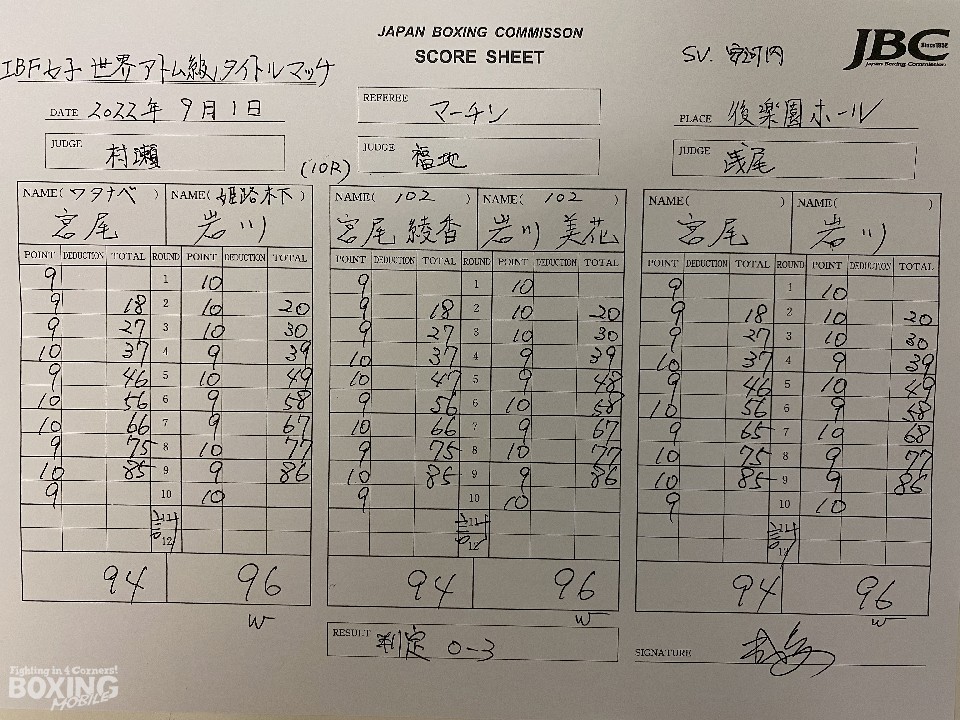 JAPAN BOXING COMMISSON
SCORE SHEET
SV. 宮河内
JBC
Since 1952
Japan Boxing Commission
IBF女子 世界アトム級タイトルマッチ
DATE 2022年 9月1日
REFEREE マーチン
PLACE 後楽園ホール
JUDGE 村瀬
(10R)
JUDGE 福地
JUDGE 浅尾
NAME( ワタナベ ) NAME( 姫路木下 )
宮尾 岩川
POINT DEDUCTION TOTAL ROUND POINT DEDUCTION TOTAL
9 1 10
9 18 2 10 20
9 27 3 10 30
10 37 4 9 39
9 46 5 10 49
10 56 6 9 58
10 66 7 9 67
9 75 8 10 77
10 85 9 9 86
9 10 10
計 11
12
94 96
W
NAME( 102 ) NAME( 102 )
宮尾 綾香 岩川 美花
POINT DEDUCTION TOTAL ROUND POINT DEDUCTION TOTAL
9 1 10
9 18 2 10 20
9 27 3 10 30
10 37 4 9 39
10 47 5 9 48
9 56 6 10 58
10 66 7 9 67
9 75 8 10 77
10 85 9 9 86
9 10 10
計 11
12
94 96
W
NAME( ) NAME( )
宮尾 岩川
POINT DEDUCTION TOTAL ROUND POINT DEDUCTION TOTAL
9 1 10
9 18 2 10 20
9 27 3 10 30
10 37 4 9 39
9 46 5 10 49
10 56 6 9 58
9 65 7 10 68
10 75 8 9 77
10 85 9 9 86
9 10 10
計 11
12
94 96
W
RESULT 判定 0-3
SIGNATURE
Fighting in 4 Corners!
BOXING
MOBILE